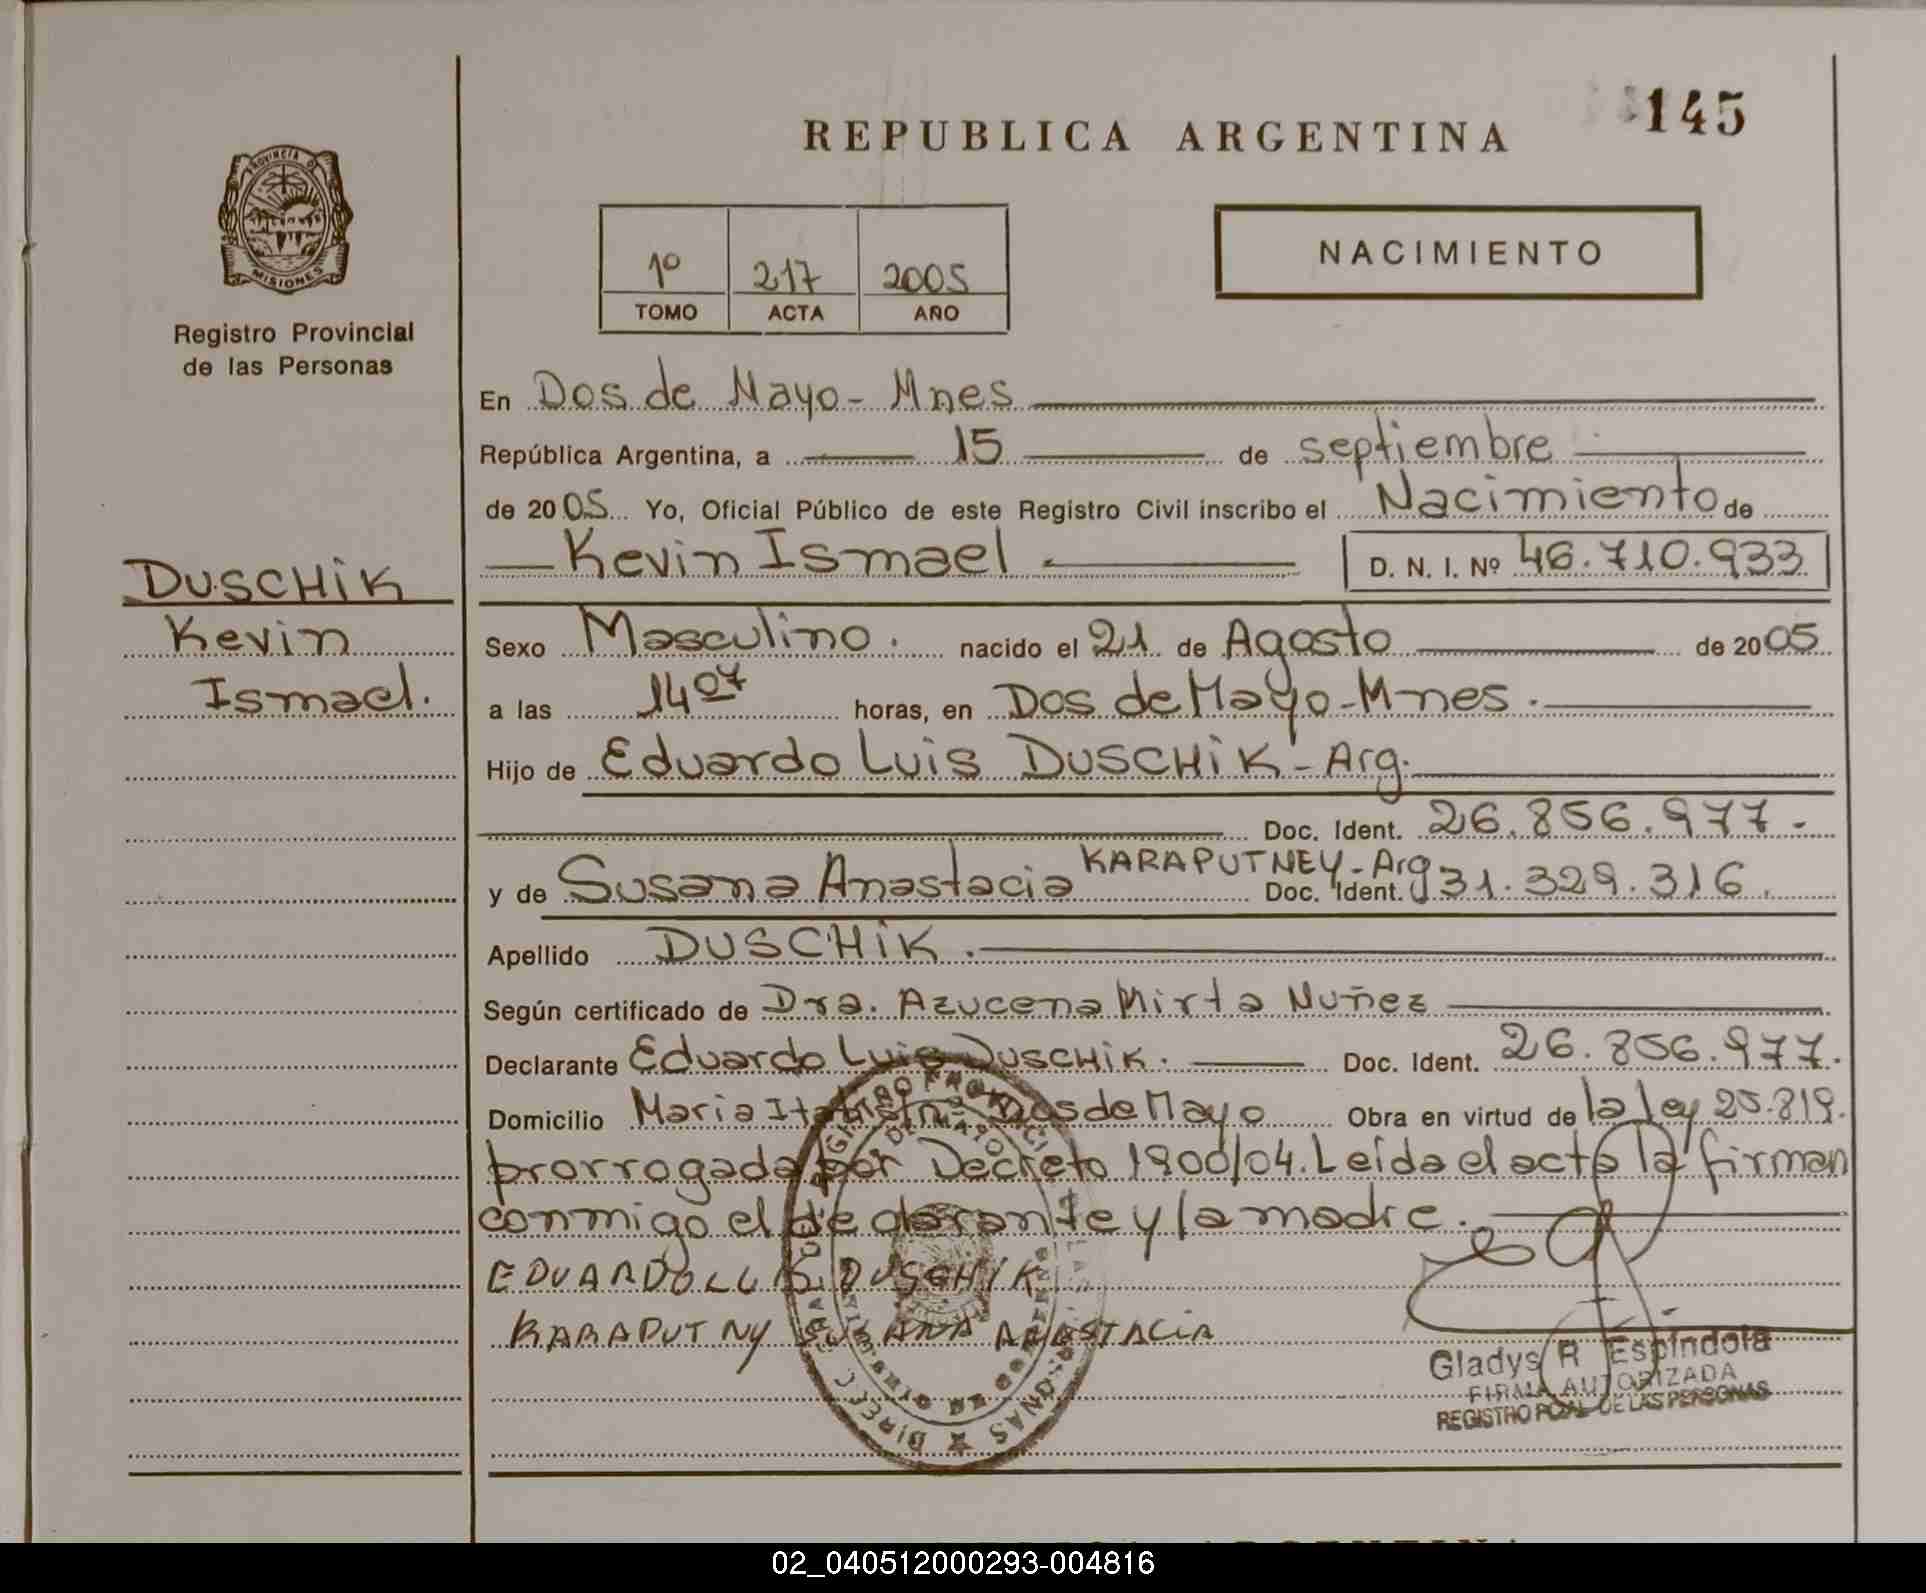 REPUBLICA ARGENTINA
145
PROVINCIA DE
MISIONES
Registro Provincial
de las Personas
1º 217 2005
TOMO ACTA AÑO
NACIMIENTO
En Dos de Mayo - Mnes
República Argentina, a 15 de septiembre
de 2005 Yo, Oficial Público de este Registro Civil inscribo el Nacimiento de
Kevin Ismael D. N. I. Nº 46.710.933
DUSCHIK
Kevin
Ismael.
Sexo Masculino. nacido el 21 de Agosto de 2005
a las 14 07 horas, en Dos de Mayo - Mnes.
Hijo de Eduardo Luis DUSCHIK - Arg.
Doc. Ident. 26.856.977.-
y de Susana Anastacia KARAPUTNEY - Arg Doc. Ident. 31.329.316.
Apellido DUSCHIK.
Según certificado de Dra. Azucena Mirta Nuñez
Declarante Eduardo Luis DUSCHIK. Doc. Ident. 26.856.977.
Domicilio Maria Dos de Mayo Obra en virtud de la ley 25.819.
prorrogada por Decreto 1900/04. Leída el acta la firman
conmigo el declarante y la madre.
EDUARDO LUIS DUSCHIK
KARAPUTNY SUSANA ANASTACIA
Gladys R Espindola
FIRMA AUTORIZADA
REGISTRO PCIAL DE LAS PERSONAS
02_040512000293-004816